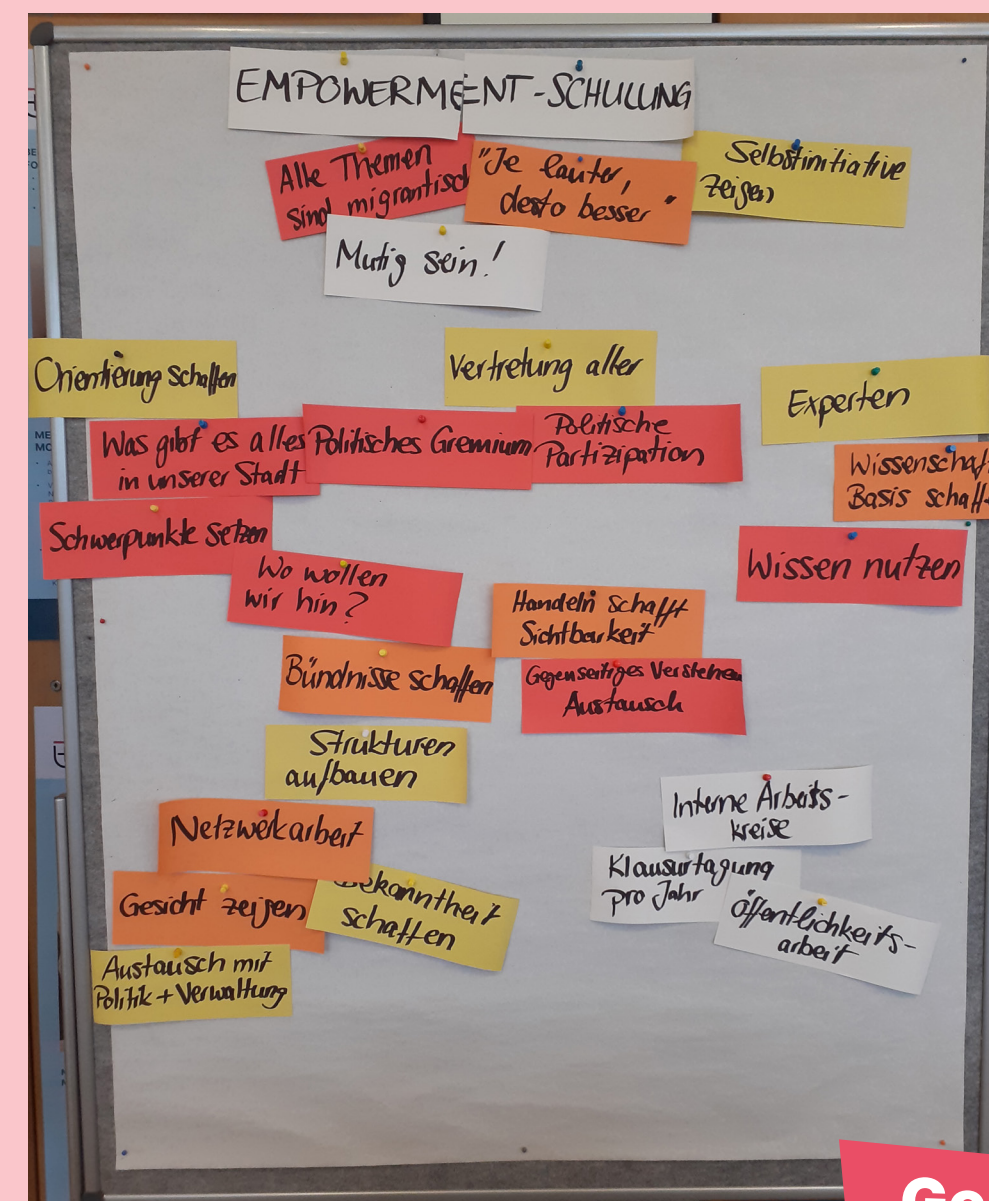 EMPOWERMENT-SCHULUNG
Alle Themen
sind migrantisch
"Je lauter,
desto besser"
Selbstinitiative
zeigen
Mutig sein!
Orientierung schaffen
Vertretung aller
Experten
Was gibt es alles
in unserer Stadt
Politisches Gremium
Politische
Partizipation
Wissenschaf
Basis schaff
Schwerpunkte setzen
Wissen nutzen
Wo wollen
wir hin?
Handeln schafft
Sichtbarkeit
Bündnisse schaffen
Gegenseitiges Verstehen
Austausch
Strukturen
aufbauen
Interne Arbeits-
kreise
Netzwerkarbeit
Klausurtagung
pro Jahr
Gesicht zeigen
Bekanntheit
schaffen
Öffentlichkeits-
arbeit
Austausch mit
Politik + Verwaltung
Ge